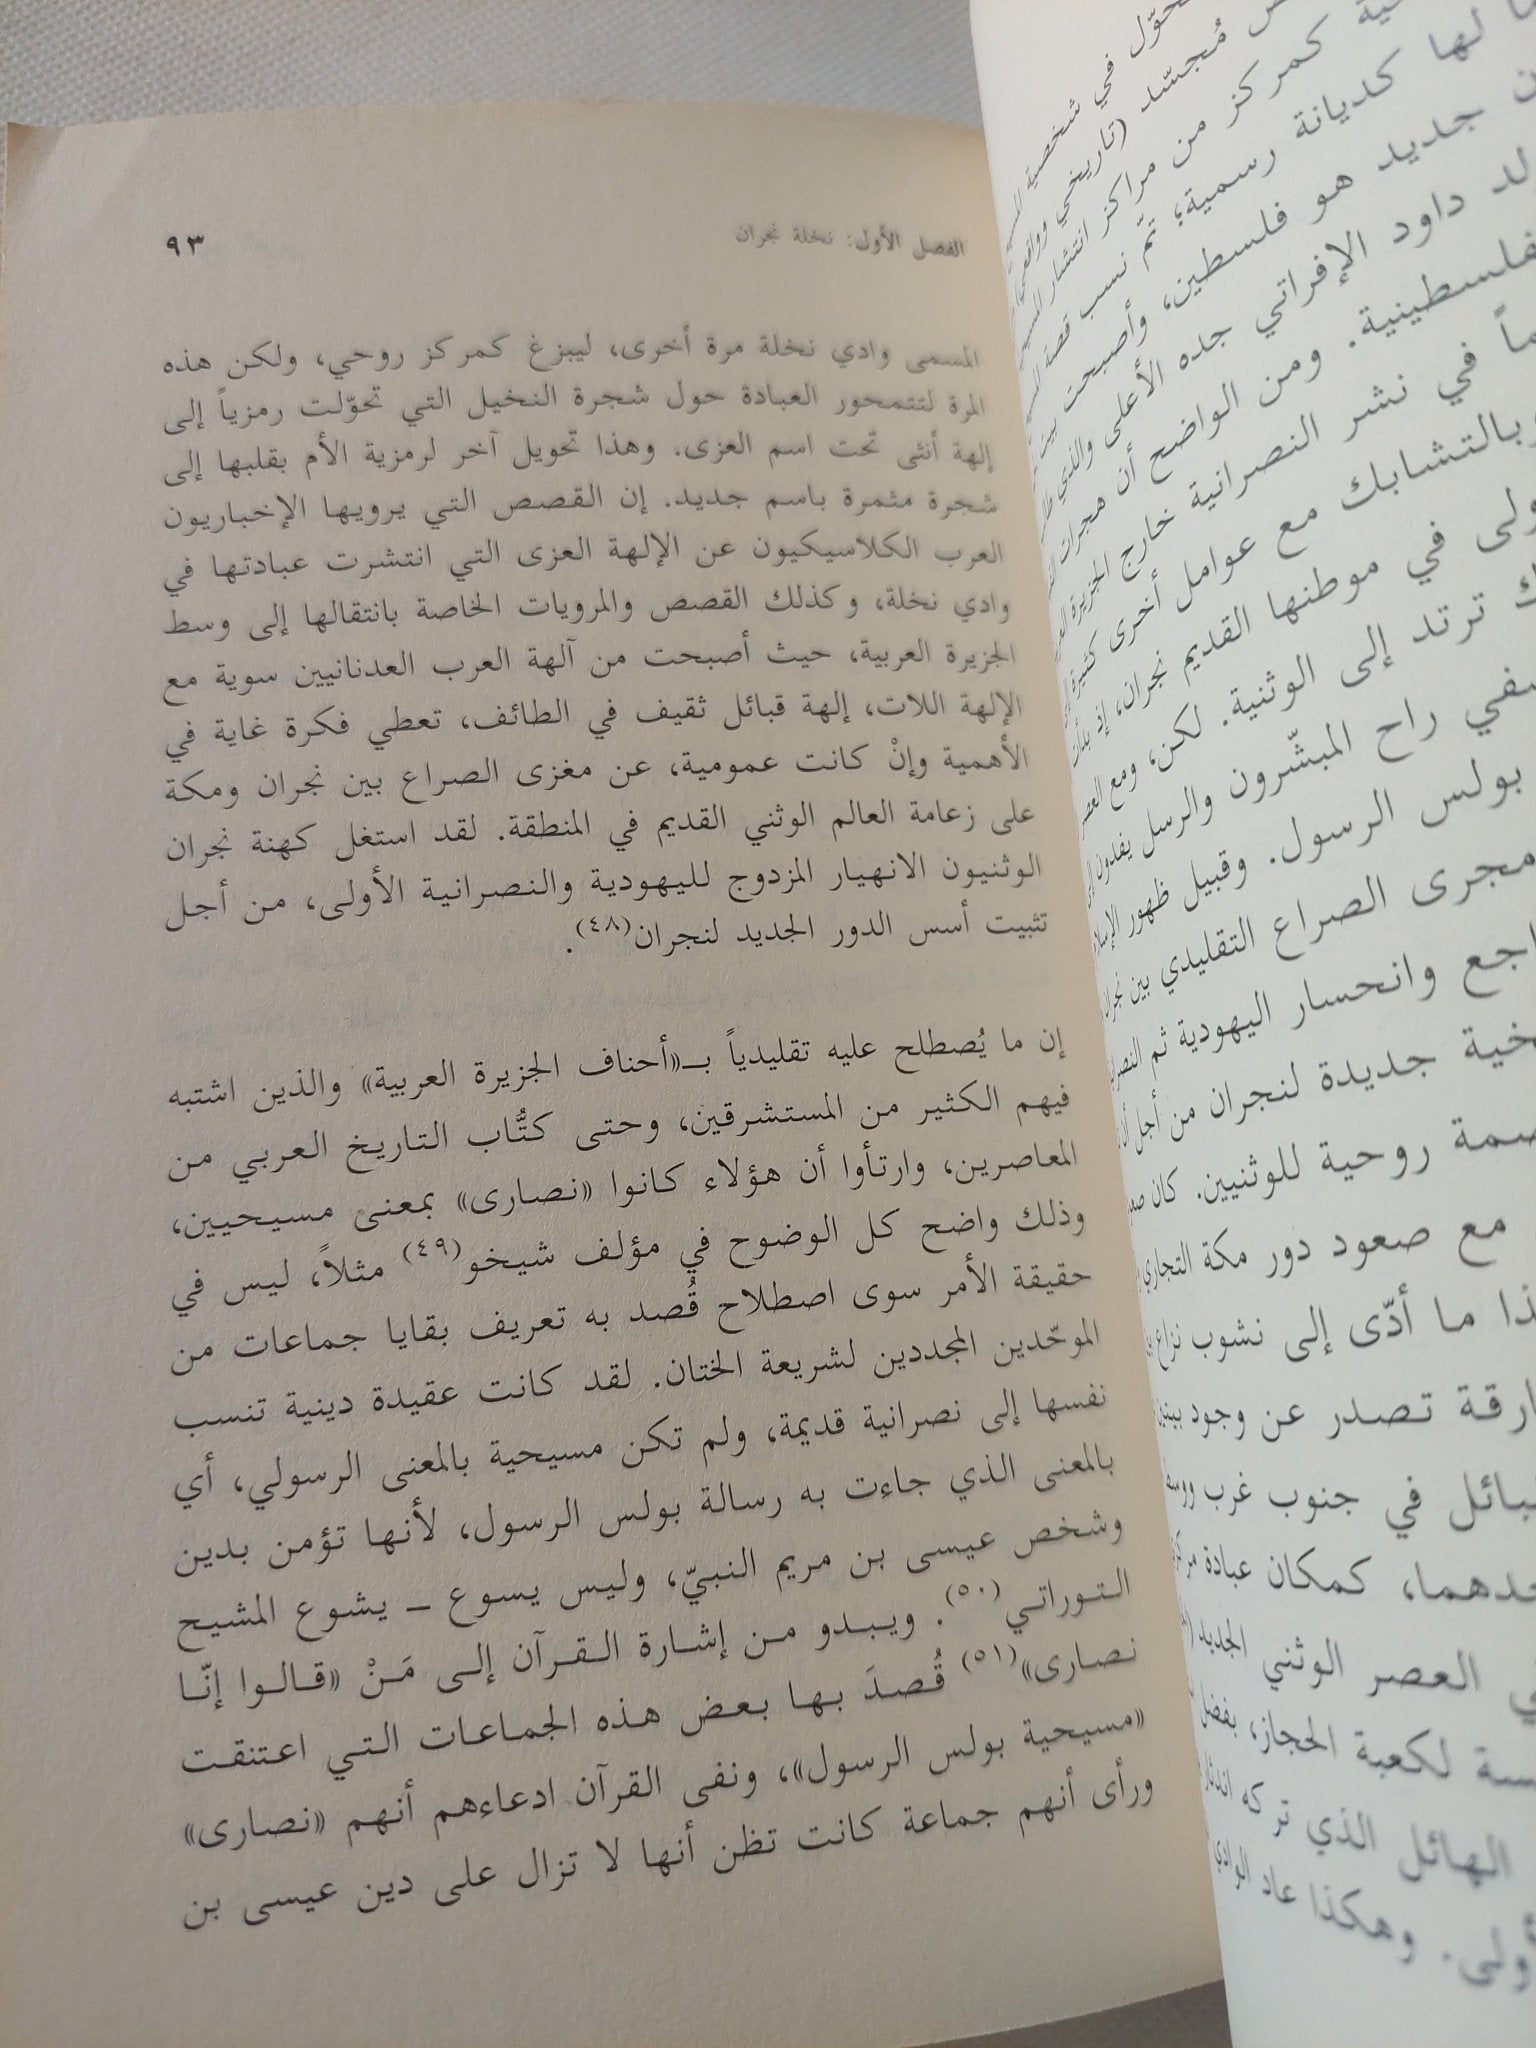 الفصل الأول: نخلة نجران
٩٣
المسمى وادي نخلة مرة أخرى، ليبزغ كمركز روحي، ولكن هذه
المرة لتتمحور العبادة حول شجرة النخيل التي تحوّلت رمزياً إلى
إلهة أنثى تحت اسم العزى. وهذا تحويل آخر لرمزية الأم بقلبها إلى
شجرة مثمرة باسم جديد. إن القصص التي يرويها الإخباريون
العرب الكلاسيكيون عن الإلهة العزى التي انتشرت عبادتها في
وادي نخلة، وكذلك القصص والمرويات الخاصة بانتقالها إلى وسط
الجزيرة العربية، حيث أصبحت من آلهة العرب العدنانيين سوية مع
الإلهة اللات، إلهة قبائل ثقيف في الطائف، تعطي فكرة غاية في
الأهمية وإنْ كانت عمومية، عن مغزى الصراع بين نجران ومكة
على زعامة العالم الوثني القديم في المنطقة. لقد استغل كهنة نجران
الوثنيون الانهيار المزدوج لليهودية والنصرانية الأولى، من أجل
تثبيت أسس الدور الجديد لنجران(٤٨).
إن ما يُصطلح عليه تقليدياً بـ«أحناف الجزيرة العربية» والذين اشتبه
فيهم الكثير من المستشرقين، وحتى كتُّاب التاريخ العربي من
المعاصرين، وارتأوا أن هؤلاء كانوا «نصارى» بمعنى مسيحيين،
وذلك واضح كل الوضوح في مؤلف شيخو(٤٩) مثلاً، ليس في
حقيقة الأمر سوى اصطلاح قُصد به تعريف بقايا جماعات من
الموحّدين المجددين لشريعة الختان. لقد كانت عقيدة دينية تنسب
نفسها إلى نصرانية قديمة، ولم تكن مسيحية بالمعنى الرسولي، أي
بالمعنى الذي جاءت به رسالة بولس الرسول، لأنها تؤمن بدين
وشخص عيسى بن مريم النبيّ، وليس يسوع ـ يشوع المشيح
التوراتي(٥٠). ويبدو من إشارة القرآن إلى مَنْ «قالوا إنّا
نصارى»(٥١) قُصدَ بها بعض هذه الجماعات التي اعتنقت
«مسيحية بولس الرسول»، ونفى القرآن ادعاءهم أنهم «نصارى»
ورأى أنهم جماعة كانت تظن أنها لا تزال على دين عيسى بن
حوّل في شخصية
مُجسّد (تاريخي وواقعي)
كمركز من مراكز انتشار
لها كديانة رسمية؛ تمّ نسب قصة
جديد هو فلسطين، وأصبحت
داود الإفراتي جده الأعلى والذي
فلسطينية. ومن الواضح أن هجرات
في نشر النصرانية خارج الجزيرة
وبالتشابك مع عوامل أخرى كثيرة
في موطنها القديم نجران، إذ بدأت
ترتد إلى الوثنية. لكن، ومع العصر
راح المبشّرون والرسل يفدون إلى
بولس الرسول. وقبيل ظهور الإسلام
مجرى الصراع التقليدي بين نجران
وانحسار اليهودية ثم
جديدة لنجران من أجل أن
روحية للوثنيين. كان
مع صعود دور مكة التجاري
ما أدّى إلى نشوب نزاع
تصدر عن وجود
في جنوب غرب
كمكان عبادة
العصر الوثني الجديد
لكعبة الحجاز، بفضل
الهائل الذي تركه
وهكذا عاد الوادي